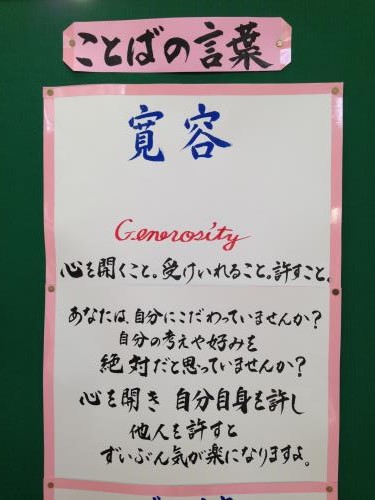 ことばの言葉
寛容
Generosity
心を開くこと。受けいれること。許すこと。
あなたは、自分にこだわっていませんか?
自分の考えや好みを
絶対だと思っていませんか?
心を開き 自分自身を許し
他人を許すと
ずいぶん気が楽になりますよ。